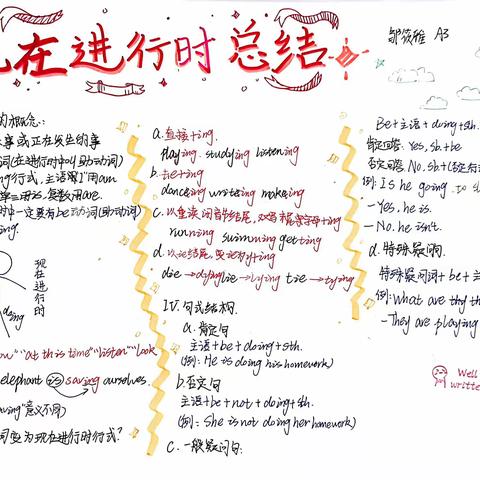 在进行时总结
A3
的概念:
事或正在发生的事
词(在进行时中叫助动词)
ng形式,主语那I用am
时中一定要有be动词(助动词)
ing.
现在进行时
doing
now" "at this time" "listen" "look
elephant is saving ourselves.
aving"意义不同)
词变为现在进行时形式?
a. 直接+ing.
playing studying listening
b. +ing
c.
running swimming getting
d.
die → dying lie → lying tie → tying
IV. 句式结构.
a. 肯定句
主语+be+doing+sth.
(例: He is doing his homework)
b. 否定句
主语+be+not+doing+sth.
(例: She is not doing her homework)
c. 一般疑问句:
Be+主语+doing+sth.
肯定回答: Yes, sb.+be
否定回答: No. sb+
例: Is he going to
- Yes. he is.
- No. he isn't.
d. 特殊疑问.
特殊疑问词+be+主
例: What are they
- They are playing
Well
written